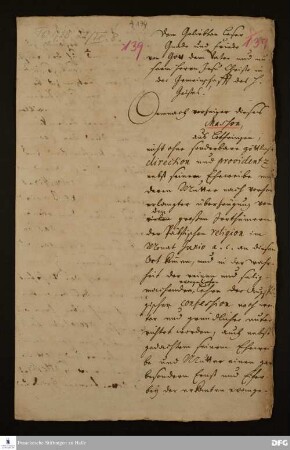 139
Dem Geliebten Leser
Gnade und Friede
von Gott dem Vater und un-
serm Herrn Jesu Christo in
der Gemeinschafft des H.
Geistes.
Demnach vorzeiger dieses
Masson,
aus Lothringen
nicht ohne sonderbare göttliche
direction und providentz
nebst seinem Eheweibe und
deren Mutter nach vorher
erlangter überzeugung von
den großen Irrthümern
der Päbstischen religion im
Monat Junio a. c. an diesen
Ort kommen, und in der wahr-
heit der reinen und seelig-
machenden Lehre der Augs-
purgischen confession noch wei-
ter und gründlicher unter-
richtet worden, auch nebst
gedachtem seinem Ehewei-
be und Mutter einen gar
besondern Ernst und Eifer
bey der erkanten
Franckesche Stiftungen zu Halle
DFG